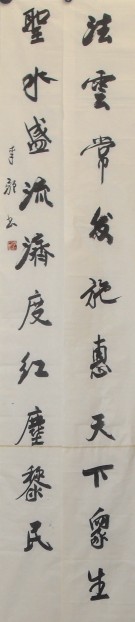 法雲常發施惠天下眾生
聖水盛流濟度红塵黎民